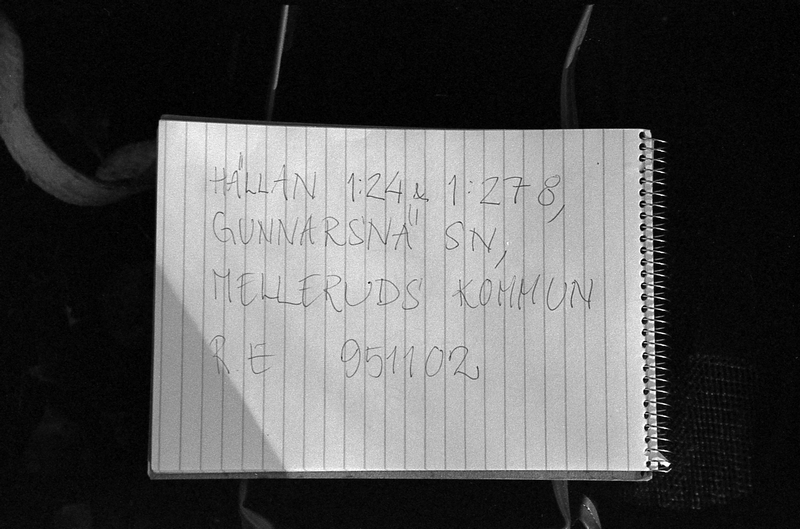 HÄLLAN 1:24 & 1:278,
GUNNARSNÄ SN,
MELLERUDS KOMMUN
R.E 951102